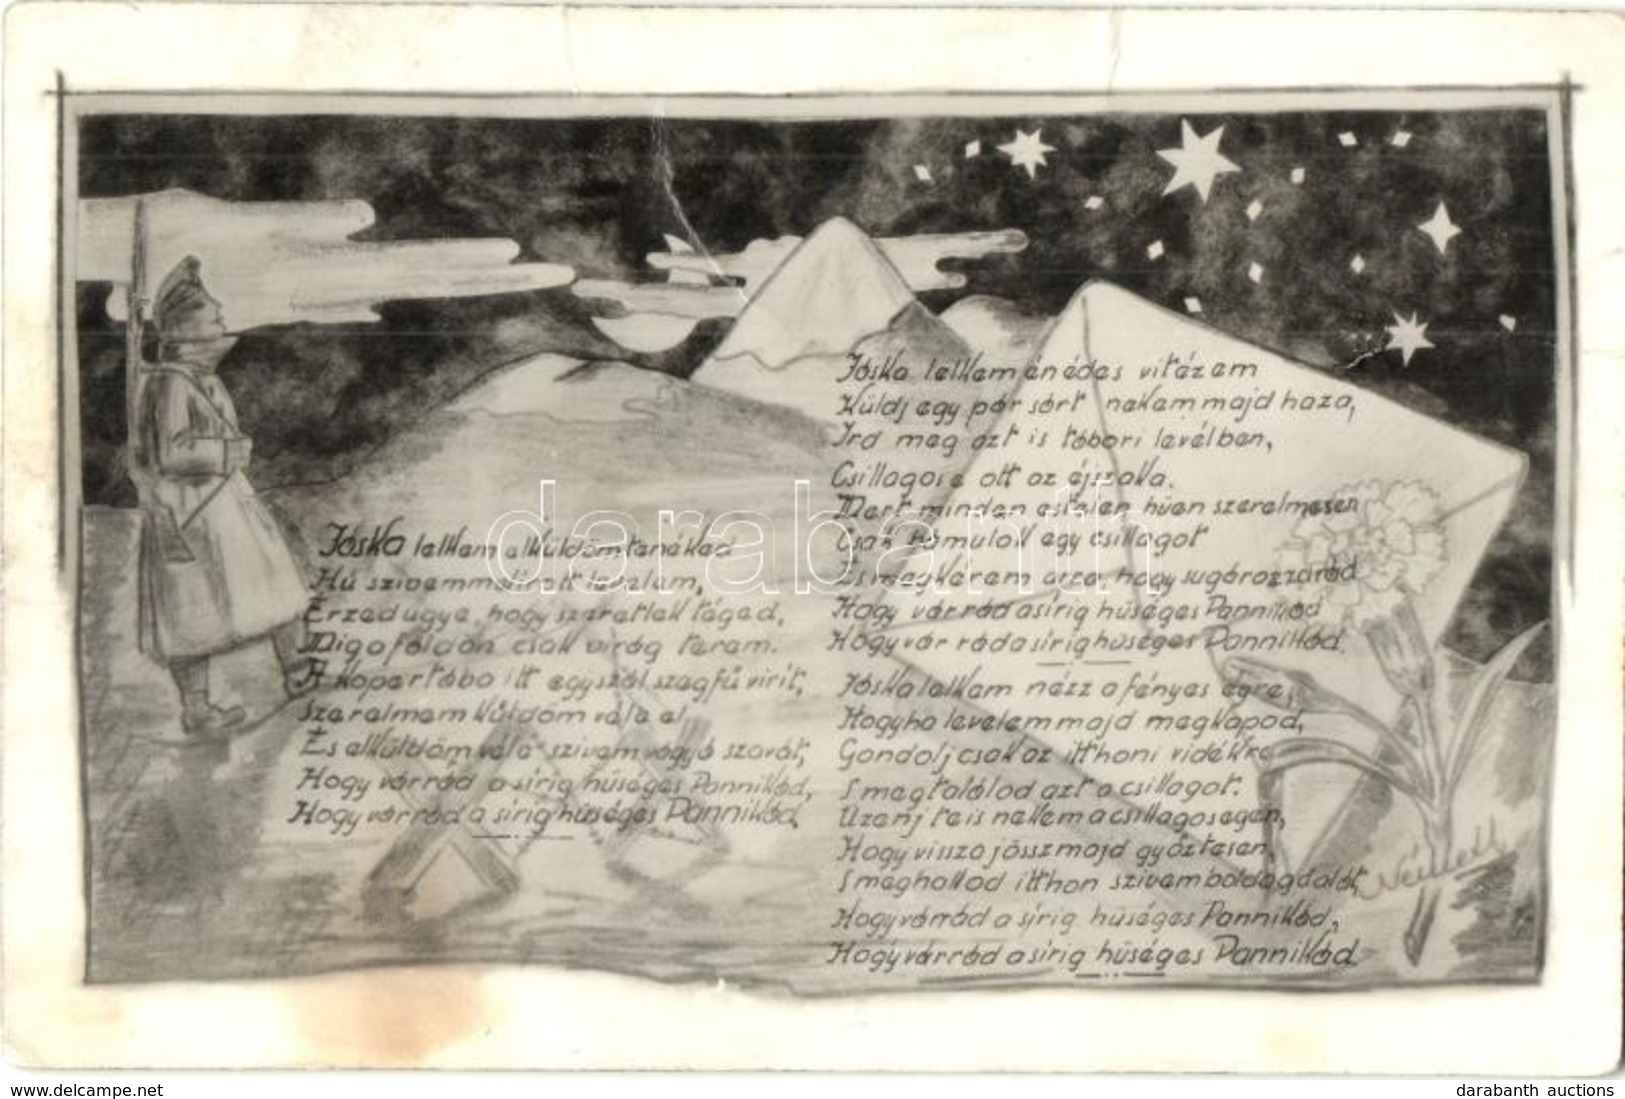 Jóska lelkem elküldöm tenéked
Hű szivemmel irott levelem,
Érzed ugye, hogy szeretlek téged,
Mig a földön csak virág terem.
A kopertába itt egy szál szegfű virit,
Szerelmem küldöm véle el
És elküldöm véle szivem vágyó szavát,
Hogy vár rád a sírig hűséges Pannikád,
Hogy vár rád a sírig hűséges Pannikád.
Jóska lelkem én édes vitézem
Küldj egy pár sórt nekem majd haza,
Ird meg azt is tábori levélben,
Csillagos e ott az éjszaka.
Mert minden estelen hűen szerelmesen
Csak bámulok egy csillagot
És megkérem arra, hogy sugározza rád
Hogy vár rád a sírig hűséges Pannikád
Hogy vár rád a sírig hűséges Pannikád.
Jóska lelkem nézz a fényes égre,
Hogyha levelem majd megkapod,
Gondolj csak az itthoni vidékre
S megtalálod azt a csillagot.
Üzenj te is nekem a csillagos egen,
Hogy vissza jössz majd győztesen
S meghallod itthon szivem boldog dalát,
Hogy vár rád a sírig hűséges Pannikád,
Hogy vár rád a sírig hűséges Pannikád.
Németh
darabanth
www.delcampe.net
darabanth auctions